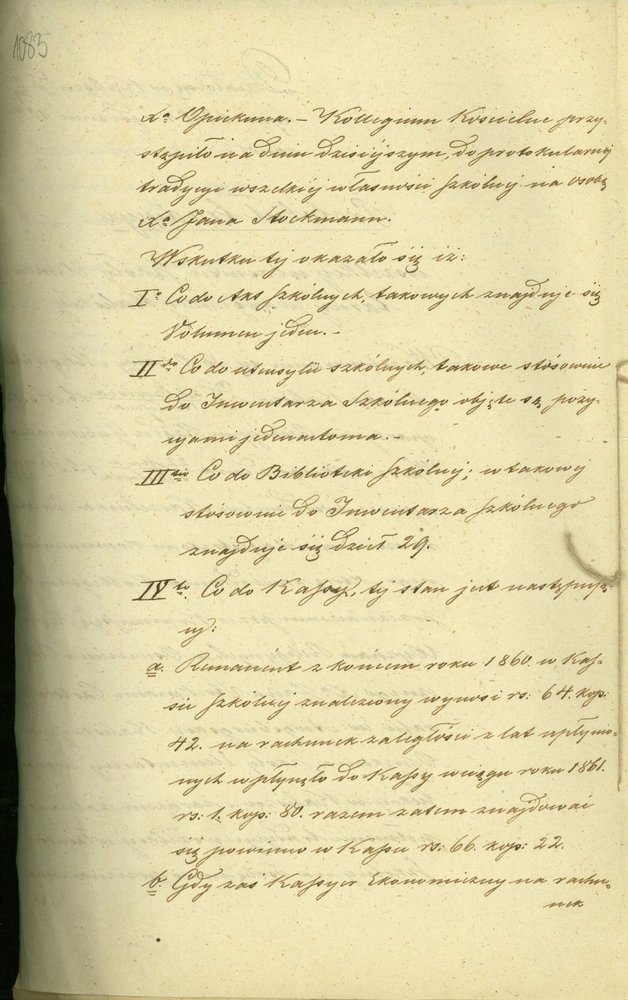 1083
Xa Opiekuna. – Kollegium Kościelne przy-
stąpiło na dniu dzisiejszym, do protokularnej
tradycyi wszelkiej własności szkólnej na osobę
Xa Jana Stockmann.
Wskutku tej okazało się iż:
I° Co do Akt Szkólnych, takowych znajduje się
Volumen jeden. –
IIdo Co do utensylii szkólnych, takowe stósownie
do Inwentarza Szkólnego objęte są pozy-
cyami jedenastoma. –
IIItio Co do Biblioteki Szkólnej; w takowej
stósownie do Inwentarza szkólnego
znajduje się dzieł 29.
IVto. Co do Kassy, tej stan jest następują-
cy:
a. Remanent z końcem roku 1860 w Kas-
sie Szkólnej znaleziony wynosi rs: 64. kop:
42. na rachunek zaległości z lat upłynio-
nych wpłynęło do Kassy w ciągu roku 1861.
rs: 1. kop: 80. razem zatem znajdować
się powinno w Kassie rs: 66. kop: 22.
b. Gdy zaś Kassyer Ekonomiczny na rachu-
nek